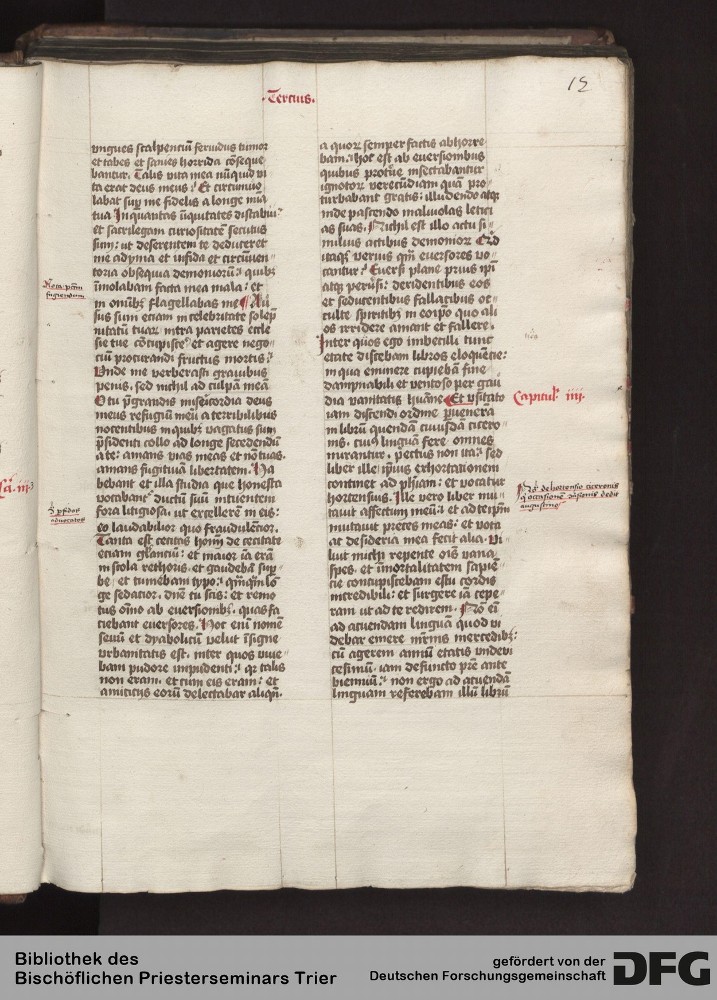 ·Tercius·
12
vngues scalpenciũ feruidus tumor
et tabes et sanies horrida cõseque
bantur. Talis vita mea nũquid vi
ta erat deus meus? Et circumuo
labat sup me fidelis a longe mĩa
tua In quantas ĩiquitates distabui
et sacrilegam curiositatẽ secutus
sum: ut deserentem te deduceret
me ad yma et infida et circũuen
toria obsequia demoniorũ: quibꝫ
ĩmolabam facta mea mala: et
in omĩbꝫ flagellabas me Au
sus sum etiam in celebritate solep̃
nitatũ tuaꝝ intra parietes eccle
sie tue cõcupisce et agere nego
ciũ procurandi fructus mortis:
Vnde me verberasti grauibus
penis, sed nichil ad culpã meã
O tu p̃grandis misericordia deus
meus refugiũ meũ a terribilibus
nocentibus in quibꝫ vagatus sum
p̃sidenti collo ad longe secedendũ
a te: amans vias meas et nõ tuas.
amans fugitiuã libertatem. Ha
bebant et illa studia que honesta
vocabanť ductũ suũ intuentem
fora litigiosa: ut excellerẽ in eis:
eo laudabilior quo fraudulẽcior.
Tanta est cecitas hom̃ de cecitate
etiam gl̃anciũ: et maior iã erã
in scola rethoris. et gaudebã sup
be et tumebam typo: qm̃qm̃ lõ
ge sedacior. dñe tu scis: et remo
tus oĩno ab euersionibꝫ. quas fa
ciebant euersores. Hoc enĩ nomẽ
seuũ et dyabolicũ velut ĩsigne
vrbanitatis est. inter quos viue
bam pudore impudenti: qꝛ talis
non eram. et cum eis eram: et
amicicijs eorũ delectabar aliqñ.
a quoꝝ semper factis abhorre
bam. hoc est ab euersionibus
quibus proteruе insectabantur
ignotoꝝ verecũdiam quã pro
turbabant gratis: illudendo atqꝫ
inde pascendo maliuolas letici
as suas. Nichil est illo actu si
milius actibus demonioꝝ
itaqꝫ verius qm̃ euersores vo
cantur? Euersi plane prius ip̃i
atqꝫ peruersi: deridentibus eos
et seducentibus fallacibus oc
culte spiritibꝫ in eo ipo quo ali
os irridere amant et fallere.
Inter quos ego imbecilli tunc
etate discebam libros eloquẽcie:
in qua eminere cupiebã fine
dampnabili et ventoso per gau
dia vanitatis hũane Et vsitato
iam discendi ordine p̃ueneram
in librũ quendam cuiusdã cicero
nis. cuiꝰ linguã fere omnes
mirantur. pectus non ita: sed
liber ille ipius exhortationem
continet ad ph̃iam: et vocatur
hortensius. Ille vero liber mu
tauit affectum meũ: et ad teip̃m
mutauit preces meas: et vota
ac desideria mea fecit alia. Vi
luit michi repente oĩs vana
spes. et ĩmortalitatem sapiẽ
cie concupiscebam estu cordis
incredibili: et surgere iã cepe
ram ut ad te redirem. Nõ eĩ
ad acuendam linguã quod vi
debar emere mr̃nis mercedibꝫ:
cũ agerem annũ etatis vndevi
cesimũ. iam defuncto pr̃e ante
bienniũ: non ergo ad acuendã
linguam referebam illũ librũ
Capitul' iiij.
Nota
fugiendum
advocatos
de hortensio ciceronis
augustino
Bibliothek des
Bischöflichen Priesterseminars Trier
gefördert von der
Deutschen Forschungsgemeinschaft
DFG